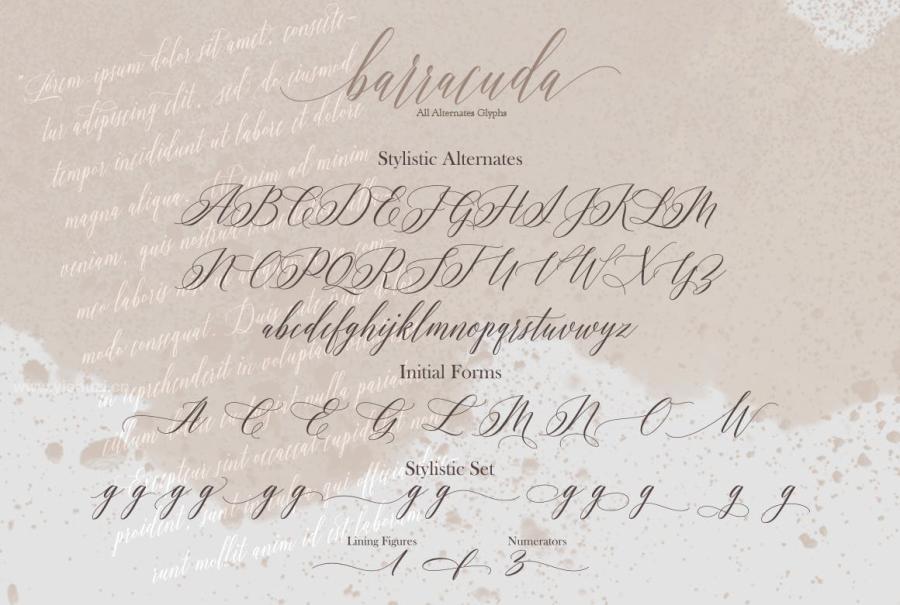 barracuda
All Alternates Glyphs
"Lorem ipsum dolor sit amet, conscte-
tur adipiscing elit, sed do eiusmod
tempor incididunt ut labore et dolore
magna aliqua. Ut enim ad minim
veniam, quis nostrud
modo consequat. Duis aute irure dolor
in reprehenderit in voluptate
cillum
nulla pariatur
Excepteur sint occaecat cupidatat non
proident, sunt in culpa qui officia
runt mollit anim id est laborum
Stylistic Alternates
ABCDEFGHIJKLM
NOPQRSTUVWXYZ
abcdefghijklmnopqrstuvwyz
Initial Forms
A C E G L M N O W
Stylistic Set
g g g g g g g g g g g g g
Lining Figures Numerators
1 & 3